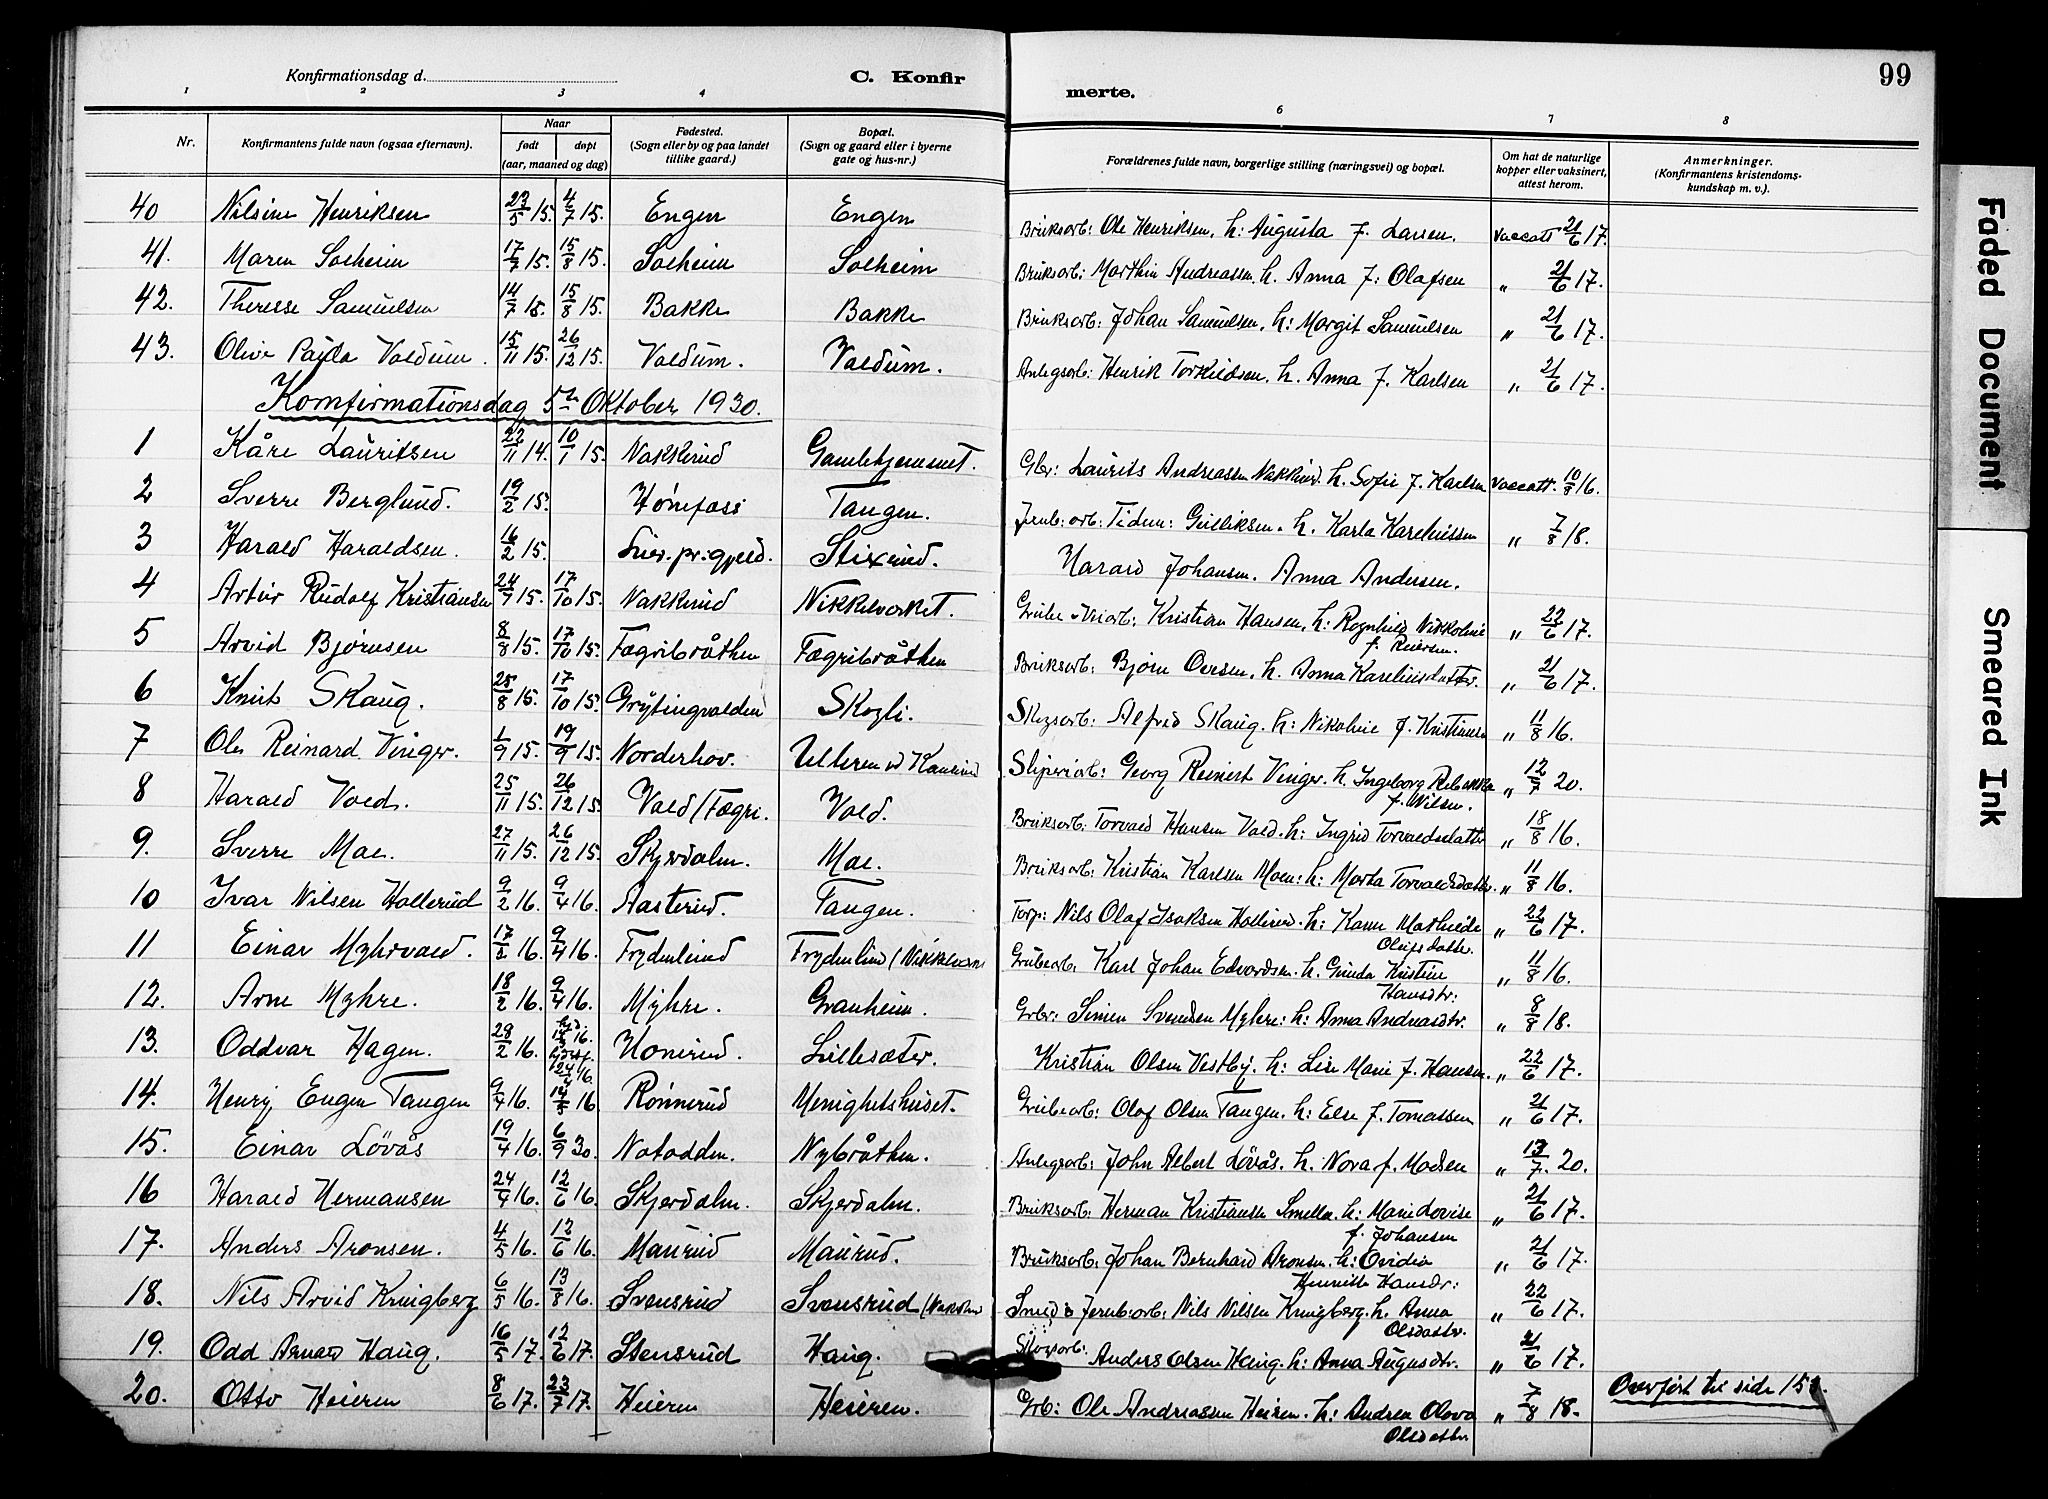 Konfirmationsdag d.
C. Konfir
merte.
99
1 2 3 4 6 7 8
Nr.
Konfirmantens fulde navn (ogsaa efternavn).
Naar
født døpt
(aar, maaned og dag)
Fødested.
(Sogn eller by og paa landet
tillike gaard.)
Bopæl.
(Sogn og gaard eller i byerne
gate og hus-nr.)
Forældrenes fulde navn, borgerlige stilling (næringsvei) og bopæl.
Om hat de naturlige
kopper eller vaksinert,
attest herom.
Anmerkninger.
(Konfirmantens kristendoms-
kundskap m. v.).
40 Nilsine Henriksen 23/5 15. 4/7 15. Engen Engen Bruksarb: Ole Henriksen. h: Augusta f. Larsen. Vaccatt 21/6 17.
41. Maren Solheim 17/7 15. 15/8 15. Solheim Solheim Bruksarb: Marthin Andreassen. h. Anna f: Olafsen „ 21/6 17.
42. Therese Samuelsen 14/7 15. 15/8 15. Bakke Bakke Bruksarb: Johan Samuelsen. h: Margit Samuelsen „ 21/6 17.
43. Olive Paula Valdum. 15/11 15. 26/12 15. Valdum. Valdum. Anlegsarb: Henrik Torkildsen. h. Anna f. Karlsen „ 21/6 17.
Konfirmationsdag 5te Oktober 1930.
1 Kåre Lauritsen 22/11 14. 10/1 15. Nakkerud Gamlehjemmet. Gbr: Laurits Andreassen Nakkerud. h. Sofie f. Karlsen Vaccatt. 10/8 16.
2 Sverre Berglund. 19/2 15. Hønefoss Tangen. Jernb: arb: Tidem: Gulliksen. h. Karla Kareliussen „ 7/8 18.
3 Harald Haraldsen. 16/2 15. Lier. pr: gjeld. Stixrud. Harald Johansen. Anna Andersen.
4 Artur Rudolf Kristiansen 24/7 15. 17/10 15. Nakkerud Nikkelverket. Kristian Hansen. h: Ragnhild Nikkoline „ 22/6 17.
f. Reiersen.
5 Arvid Bjørnsen 8/8 15. 17/10 15. Fægribråthen Fægribråthen Bruksarb: Bjørn Oversen. h. Anna Kareliusdatter. „ 21/6 17.
6 Knut Skaug. 28/8 15. 17/10 15. Grytingvolden Skogli. Skogsarb: Alfred Skaug. h: Nikoline f. Kristiansen „ 11/8 16.
7 Ole Reinard Vinger. 1/9 15. 19/9 15. Norderhov. Ulleren Sliperiarb: Georg Reinert Vinger. h Ingeborg Rebekka „ 12/7 20.
f. Nilsen.
8 Harald Vold. 25/11 15. 26/12 15. Vold/Fægri. Vold. Bruksarb: Torvald Hansen Vold. h: Ingrid Torvaldsdatter „ 18/8 16.
9. Sverre Moe. 27/11 15. 26/12 15. Skjerdalen. Moe. Bruksarb: Kristian Karlsen Moen: h: Marta Torvaldsdatter. „ 11/8 16.
10 Ivar Nilsen Hollerud 9/2 16. 9/4 16. Aasterud. Tangen. Torp: Nils Olaf Isaksen Hollerud. h: Karen Mathilde „ 22/6 17.
Olufsdatter.
11 Einar Myhrvold. 17/2 16. 9/4 16. Frydenlund Frydenlund (Nikkelverk Grubearb: Karl Johan Edvardsen. h. Gunda Kristine „ 11/8 16.
Hansdtr:
12. Arne Myhre. 18/2 16. 9/4 16. Myhre. Granheim. Grbr: Simen Svendsen Myhre: h: Anna Andreasdtr. „ 8/8 18.
13. Oddvar Hagen. 29/2 16. Honerud. Lillesæter. Kristian Olsen Vestby. h: Lise Marie f. Hansen. „ 22/6 17.
14. Henry Eugen Tangen 9/4 16. 16 Rønnerud Menighetshuset. Grubearb: Olaf Olsen Tangen. h: Else f. Tomassen „ 21/6 17.
15. Einar Lövås 19/4 16. 6/9 30. Notodden. Nybråthen. Anlegsarb: John Albert Lövås. h. Nora f. Madsen „ 13/7. 20.
16 Harald Hermansen 24/4 16. 12/6 16. Skjerdalen. Skjerdalen. Bruksarb: Herman Kristiansen Smellen. h: Marie Lovise „ 21/6 17.
f. Johansen
17. Anders Aronsen. 4/5 16. 12/6 16. Maurud Maurud. Bruksarb: Johan Bernhard Aronsen. h: Ovidia „ 21/6 17.
Henriette Hansdr:
18. Nils Arvid Kringberg 6/5 16. 13/8 16. Svensrud Svensrud Smed & Jernb: arb: Nils Nilsen Kringberg. h. Anna „ 22/6 17.
Olsdatter.
19. Odd Arnald Haug. 16/5 17. 12/6 17. Stensrud Haug. Skogsarb: Anders Olsen Haug. h: Anna Augusdtr. „ 21/6 17.
20. Otto Heieren 8/6 17. 23/7 17. Heieren Heieren. Grb: Ole Andreassen Heieren. h: Andrea Olava „ 7/8 18. Overført til side 158.
Olsdatter
Faded Document
Smeared Ink